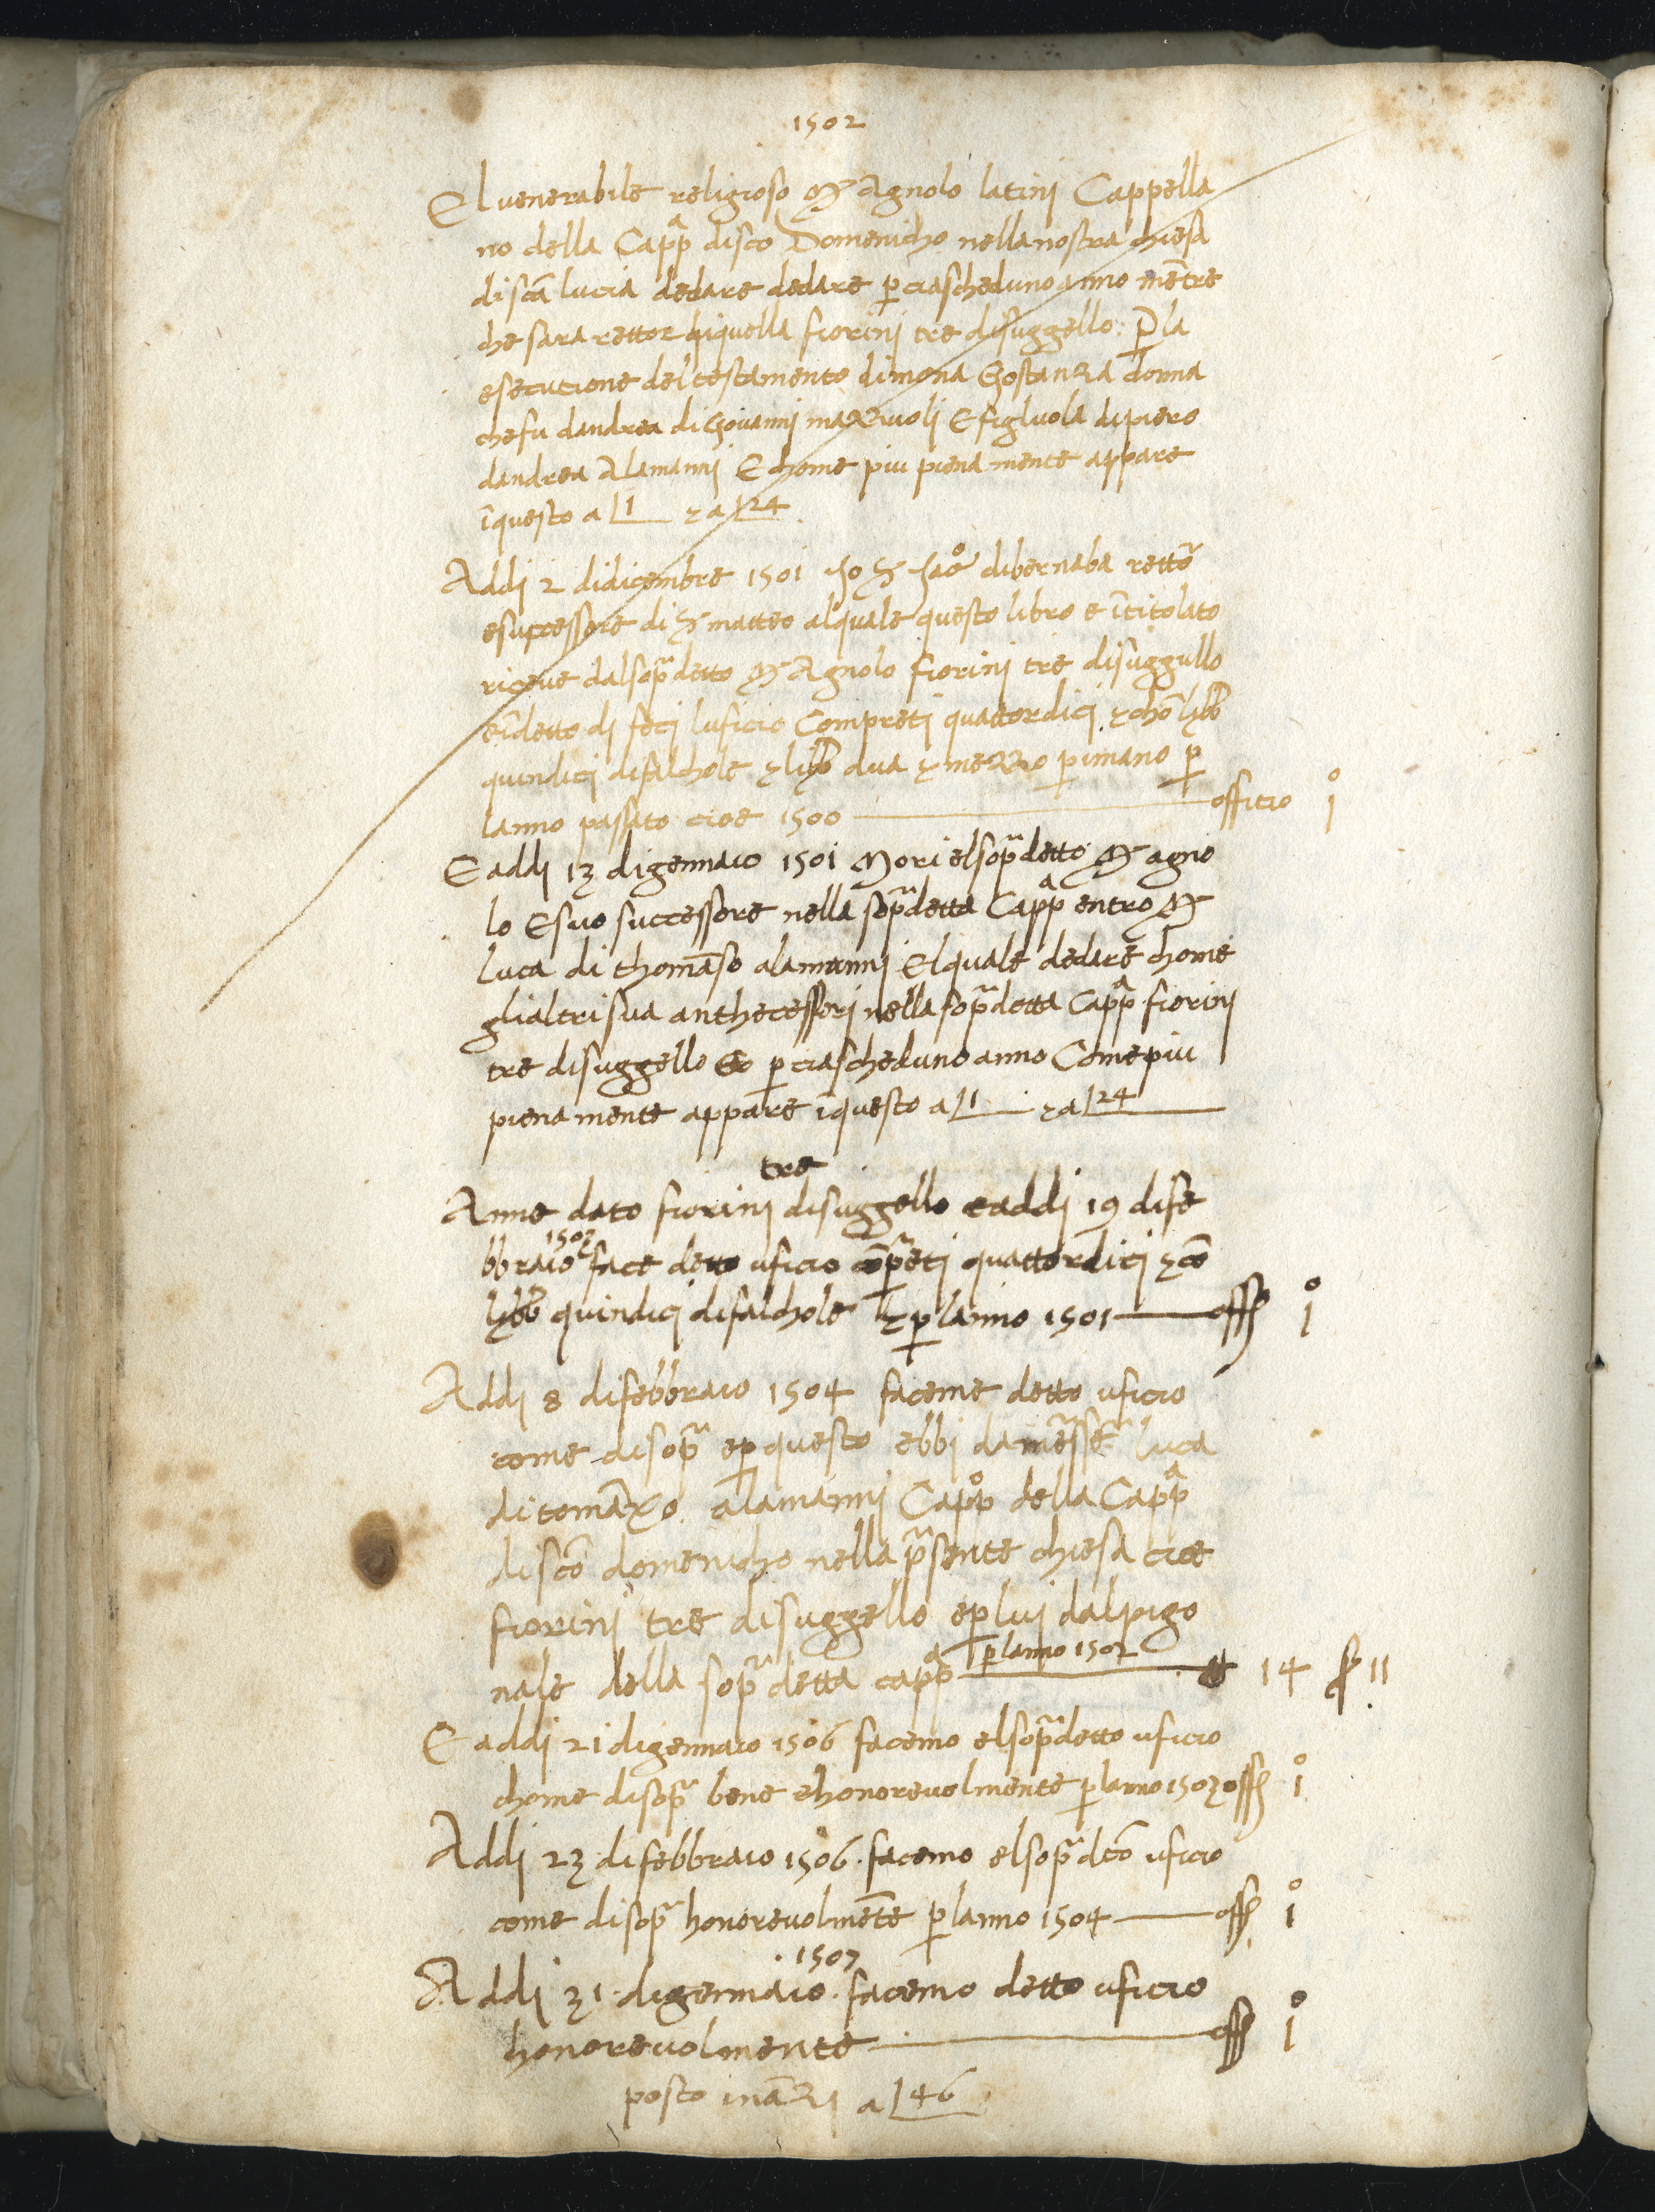 1502
El venerabile religioso Mr Agnolo latini Cappella
no della Cappa disco Domenicho nella nostra chiesa
di sca lucia dedare dedare p ciascheduno anno mētre
che sara rettor diquella fiorini tre disuggello: P la
esecutione del testamento di mona Ghostanza donna
che fu dandrea di Giovanni mazzuoli E figluola dipiero
dandrea Alamanni E chome piu piena mente appare
īquesto a 1 & a 24
Addi 2 didicembre 1501 dibernaba rettor
e successore di matteo alquale questo libro e ītitolato
riceve dal sopra detto Mr Agnolo fiorini tre disuggullo
detto di feci luficio Compreti quattordici & chō lybb
quindici di falchole & libb dua & mezzo pimano p
lanno passato cioe 1500 officio 1o
E addi 13 digennaio 1501 Mori el sopra detto Mr agno
lo E suo successore nella sopra detta Cappa entro Mr
luca di thomaso alamanni Elquale dedare chome
glialtri sua anthecessori nella sopra detta Cappa fiorini
tre disuggello p ciascheduno anno Come piu
piena mente appare īquesto a 1 & a 24
tre
Anne dato fiorini disuggello eaddi 19 dife
1503
bbraio face detto uficio cōpreti quattordici & cō
lybb quindici difalchole & p lanno 1501 off 1o
Addi 8 difebbraio 1504 faceme detto uficio
come di sopra ep questo ebbi da messer luca
di tomaxo alamanni Cappo della Cappa
di sco domenicho nella psente chiesa cioe
fiorini tre disuggello ep lui dalpigo
p lanno 1502
nale della sopra detta cappa 14 11
E addi 21 digennaio 1506 facemo el sopra detto uficio
chome disopra bene ehonorevolmente p lanno 1503 off 1o
Addi 23 difebbraio 1506. facemo el sopra dco uficio
come disopra honorevolmēte p lanno 1504 off 1o
1507
Addi 31. digennaio. facemo detto uficio
honorevolmente off 1o
posto inazi a 46